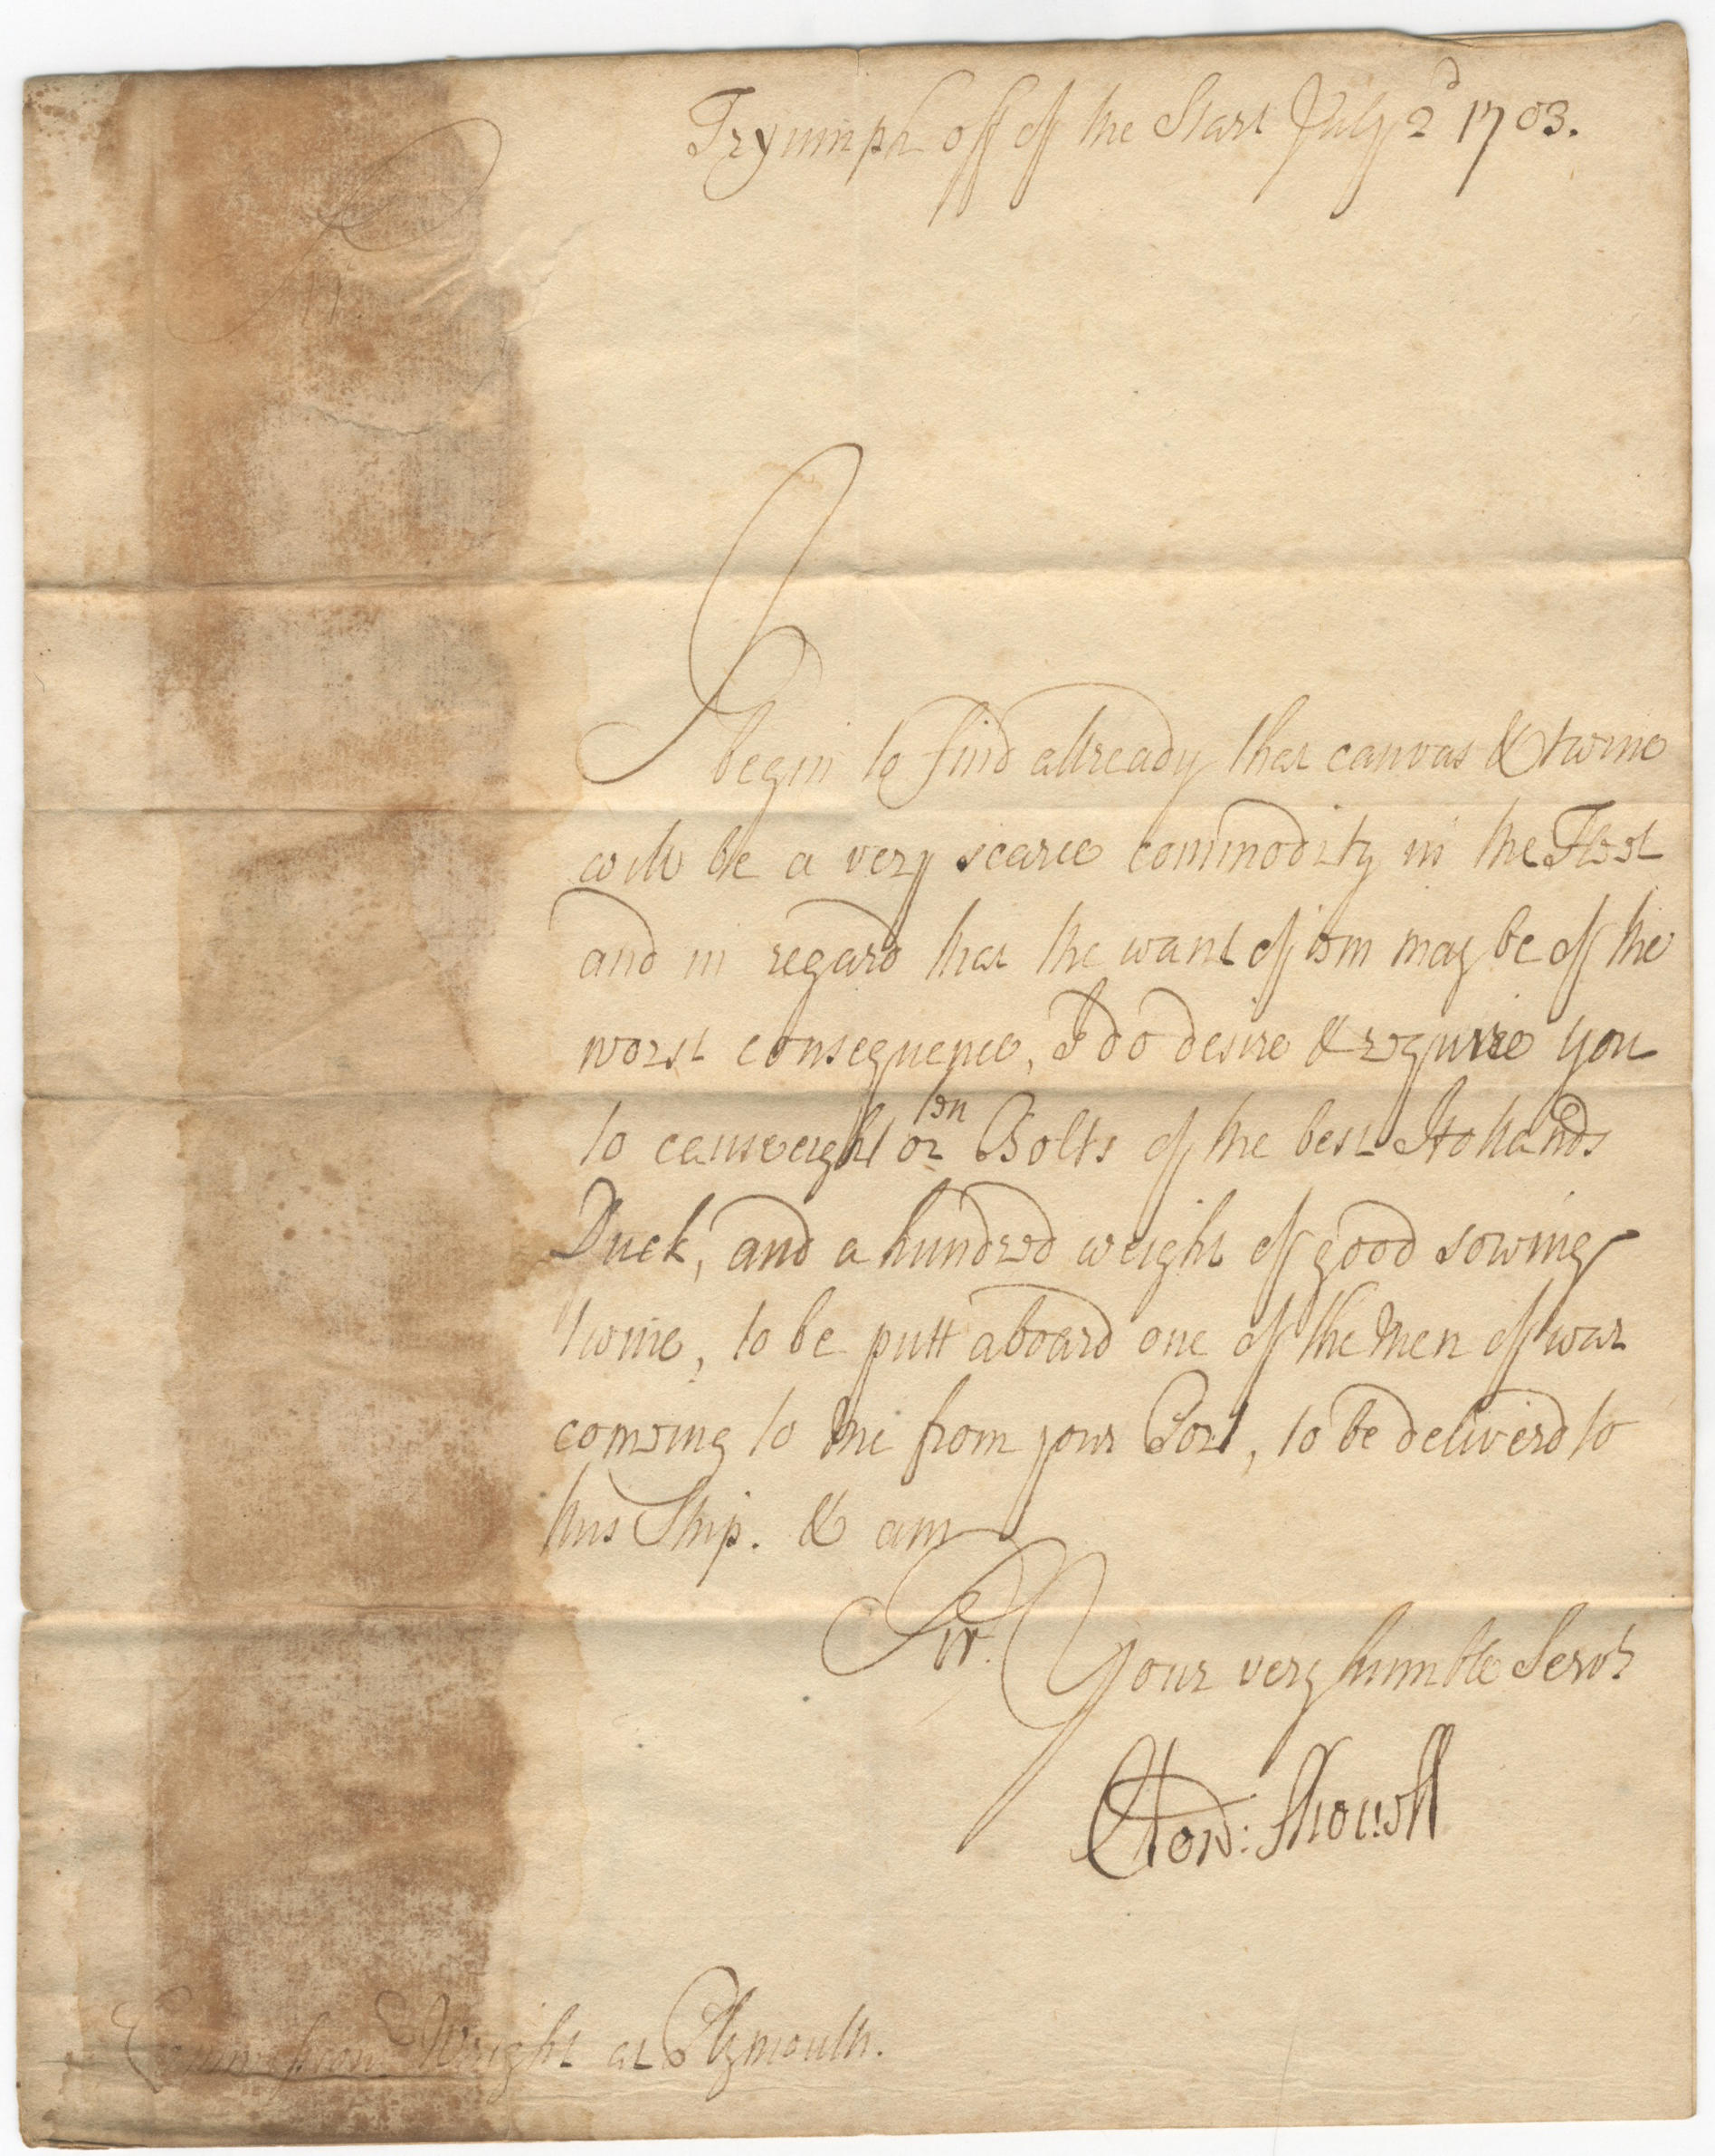 Tryumph off of the Start July 2d 1703.
Sr.
I begin to find allready that canvas & twine
will be a very scarce commodity in the Fleet
and in regard that the want of 'em may be of the
worst consequence, I do desire & require you
to cause eight or ten Bolts of the best Hollands
Duck, and a hundred weight of good sowing
twine, to be putt aboard one of the Men of war
comeing to me from your Port, to be deliverd to
this Ship. & am
Sir.
Your very humble Servt
Clowd: Shovell
Wright at Plymouth.